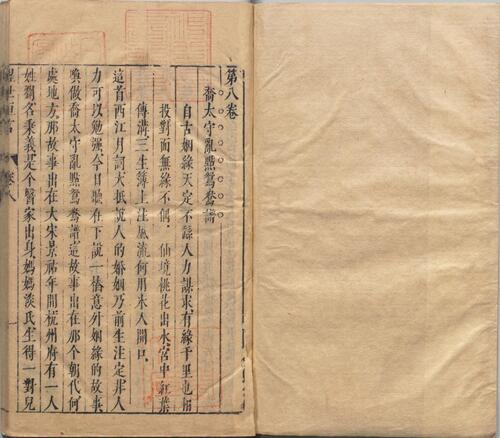 第八卷
喬太守亂點鴛鴦譜
自古姻緣天定不繇人力謀求有緣千里也相
投對面無緣不偶仙境桃花出水宮中紅葉
傳溝三生簿上注風流何用冰人開口
這首西江月詞大抵說人的婚姻乃前生注定非人
力可以勉强今日聽在下說一樁意外姻緣的故事
喚做喬太守亂點鴛鴦譜這故事出在那個朝代何
處地方那故事出在大宋景祐年間杭州府有一人
姓劉名秉義是个醫家出身媽媽淡氏生得一對兒
醒世恒言
卷八